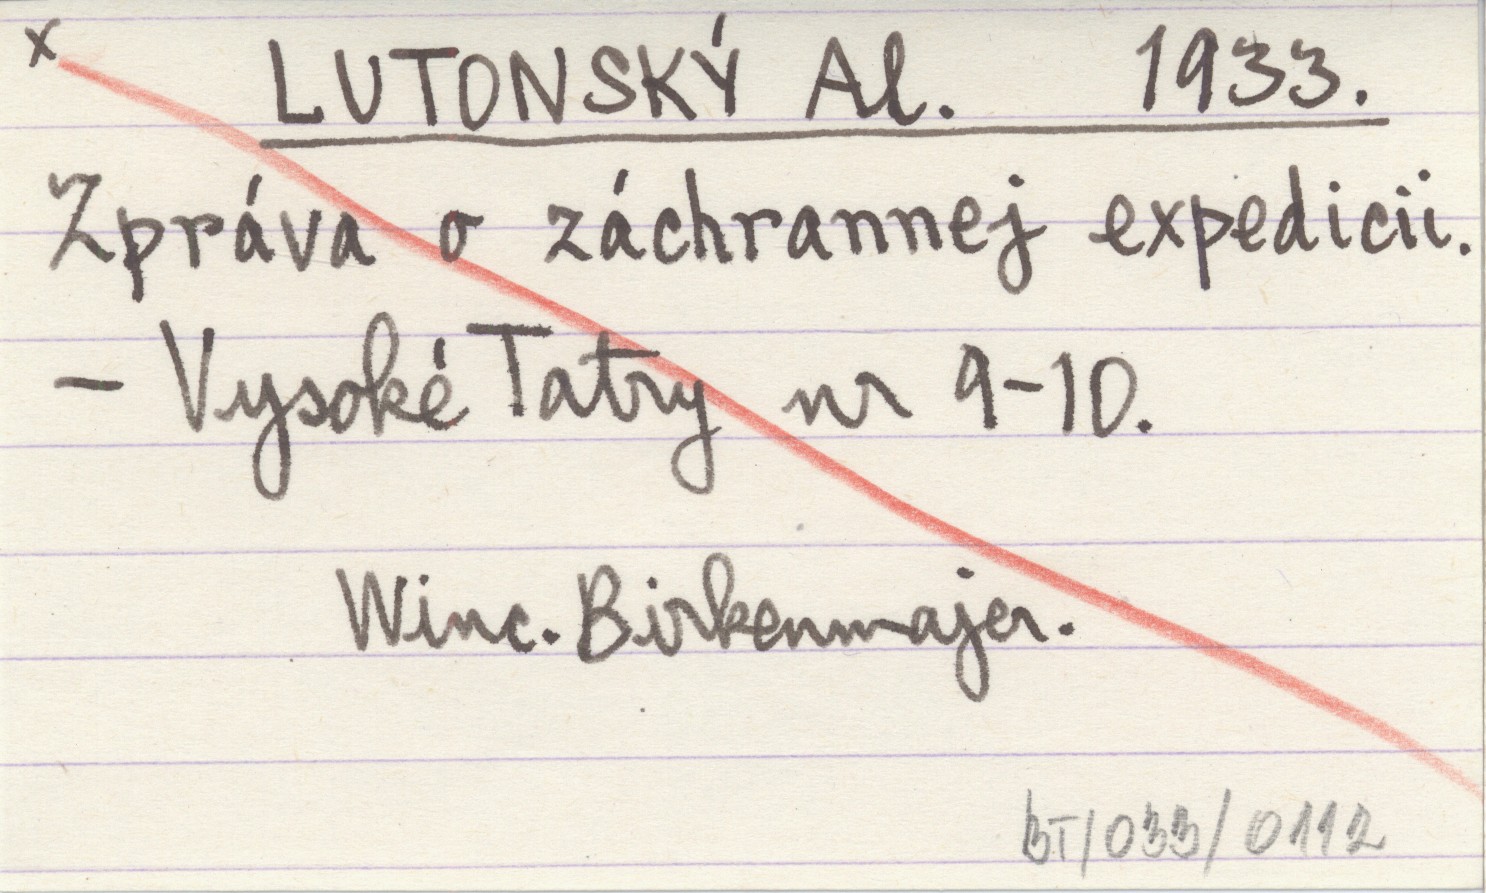 x LUTONSKÝ Al. 1933.
Zpráva o záchrannej expedicii.
- Vysoké Tatry nr 9-10.
Winc. Birkenmajer.
BT/033/0112